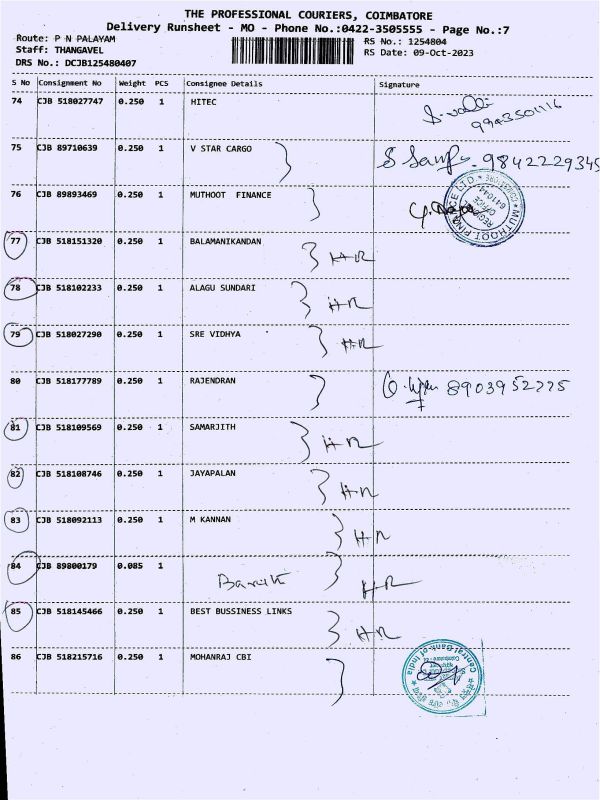 THE PROFESSIONAL COURIERS, COIMBATORE
Delivery Runsheet - MO - Phone No.:0422-3505555 - Page No.:7
Route: P N PALAYAM
RS No.: 1254804
Staff: THANGAVEL
RS Date: 09-Oct-2023
DRS No.: DCJB125480407
S No Consignment No Weight PCS Consignee Details Signature
74 CJB 518027747 0.250 1 HITEC
9943501116
75 CJB 89710639 0.250 1 V STAR CARGO 9842229345
76 CJB 89893469 0.250 1 MUTHOOT FINANCE
MUTHOOT FINANCE LTD.
REGIONAL OFFICE
641044
77 CJB 518151320 0.250 1 BALAMANIKANDAN
78 CJB 518102233 0.250 1 ALAGU SUNDARI
79 CJB 518027290 0.250 1 SRE VIDHYA
80 CJB 518177789 0.250 1 RAJENDRAN 8903952775
81 CJB 518109569 0.250 1 SAMARJITH
82 CJB 518108746 0.250 1 JAYAPALAN
83 CJB 518092113 0.250 1 M KANNAN
84 CJB 89800179 0.085 1
85 CJB 518145466 0.250 1 BEST BUSSINESS LINKS
86 CJB 518215716 0.250 1 MOHANRAJ CBI
Central Bank of India